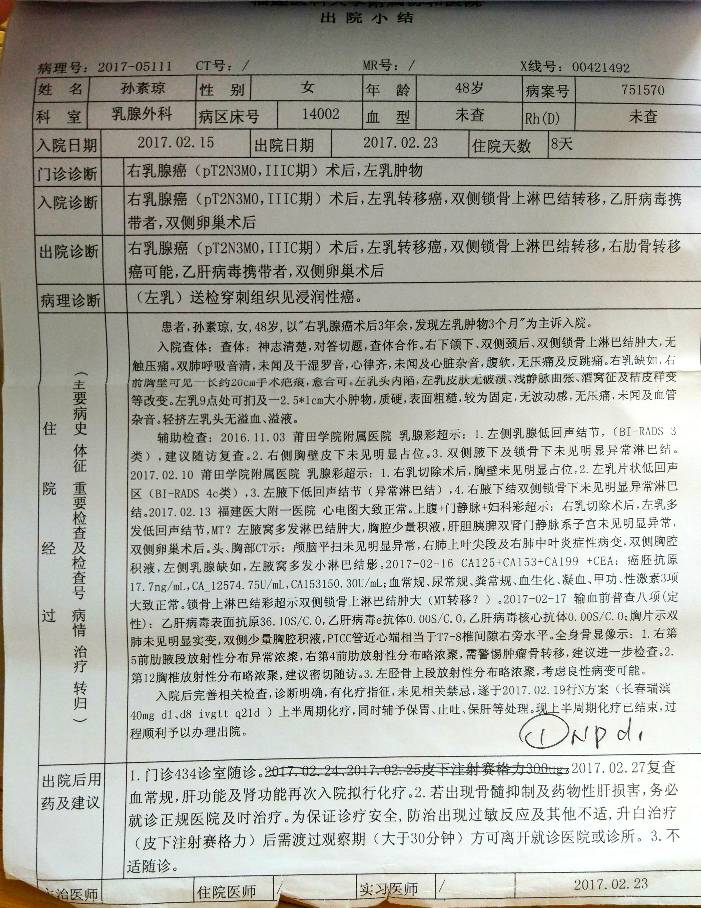 出院小结
病理号：2017-05111 CT号：/ MR号：/ X线号：00421492
姓 名 孙素琼 性 别 女 年 龄 48岁 病案号 751570
科 室 乳腺外科 病区床号 14002 血 型 未查 Rh(D) 未查
入院日期 2017.02.15 出院日期 2017.02.23 住院天数 8天
门诊诊断 右乳腺癌（pT2N3M0,IIIC期）术后,左乳肿物
入院诊断 右乳腺癌（pT2N3M0,IIIC期）术后,左乳转移癌,双侧锁骨上淋巴结转移,乙肝病毒携
带者,双侧卵巢术后
出院诊断 右乳腺癌（pT2N3M0,IIIC期）术后,左乳转移癌,双侧锁骨上淋巴结转移,右肋骨转移
癌可能,乙肝病毒携带者,双侧卵巢术后
病理诊断 （左乳）送检穿刺组织见浸润性癌。
住院经过
（主要病史 体征 重要检查及检查号 病情 治疗 转归）
患者,孙素琼,女,48岁,以"右乳腺癌术后3年余,发现左乳肿物3个月"为主诉入院。
入院查体：查体：神志清楚,对答切题,查体合作。右下颌下、双侧颈后、双侧锁骨上淋巴结肿大,无
触压痛。双肺呼吸音清,未闻及干湿罗音,心律齐,未闻及心脏杂音,腹软,无压痛及反跳痛。右乳缺如,右
前胸壁可见一长约20cm手术疤痕,愈合可。左乳头内陷,左乳皮肤无破溃、浅静脉曲张、酒窝征及桔皮样变
等改变。左乳9点处可扪及一2.5*1cm大小肿物,质硬,表面粗糙,较为固定,无波动感,无压痛,未闻及血管
杂音。轻挤左乳头无溢血、溢液。
辅助检查：2016.11.03 莆田学院附属医院 乳腺彩超示：1.左侧乳腺低回声结节,（BI-RADS 3
类）,建议随访复查。2.右侧胸壁皮下未见明显占位。3.双侧腋下及锁骨下未见明显异常淋巴结。
2017.02.10 莆田学院附属医院 乳腺彩超示：1.右乳切除术后,胸壁未见明显占位,2.左乳片状低回声
区（BI-RADS 4c类）,3.左腋下低回声结节（异常淋巴结）,4.右腋下结双侧锁骨下未见明显异常淋巴
结。2017.02.13 福建医大附一医院 心电图大致正常。上腹+门静脉+妇科彩超示：右乳切除术后,左乳多
发低回声结节,MT？左腋窝多发淋巴结肿大,胸腔少量积液,肝胆胰脾双肾门静脉系子宫未见明显异常,
双侧卵巢术后。头、胸部CT示：颅脑平扫未见明显异常,右肺上叶尖段及右肺中叶炎症性病变,双侧胸腔
积液,左侧乳腺缺如,左腋窝多发小淋巴结影,2017-02-16 CA125+CA153+CA199 +CEA：癌胚抗原
17.7ng/mL,CA_12574.75U/mL,CA153150.30U/mL;血常规,尿常规、粪常规、血生化、凝血、甲功、性激素3项
大致正常。锁骨上淋巴结彩超示双侧锁骨上淋巴结肿大（MT转移？）。2017-02-17 输血前普查八项(定
性)：乙肝病毒表面抗原36.10S/C.O,乙肝病毒e抗体0.00S/C.O,乙肝病毒核心抗体0.00S/C.O;胸片示双
肺未见明显实变,双侧少量胸腔积液,PICC管近心端相当于T7-8椎间隙右旁水平。全身骨显像示：1.右第
5前肋腋段放射性分布异常浓聚,右第4前肋放射性分布略浓聚,需警惕肿瘤骨转移,建议进一步检查。2.
第12胸椎放射性分布略浓聚,建议密切随访。3.左胫骨上段放射性分布略浓聚,考虑良性病变可能。
入院后完善相关检查,诊断明确,有化疗指征,未见相关禁忌,遂于2017.02.19行N方案（长春瑞滨
40mg d1、d8 ivgtt q21d ）上半周期化疗,同时辅予保胃、止吐、保肝等处理。现上半周期化疗已结束,过
程顺利予以办理出院。
①NP d1
出院后用药及建议
1.门诊434诊室随诊。2017.02.24、2017.02.25皮下注射赛格力300ug,2017.02.27复查
血常规,肝功能及肾功能再次入院拟行化疗。2.若出现骨髓抑制及药物性肝损害,务必
就诊正规医院及时治疗。为保证诊疗安全,防治出现过敏反应及其他不适,升白治疗
（皮下注射赛格力）后需渡过观察期（大于30分钟）方可离开就诊医院或诊所。3.不
适随诊。
主治医师 住院医师 / 实习医师 / 2017.02.23